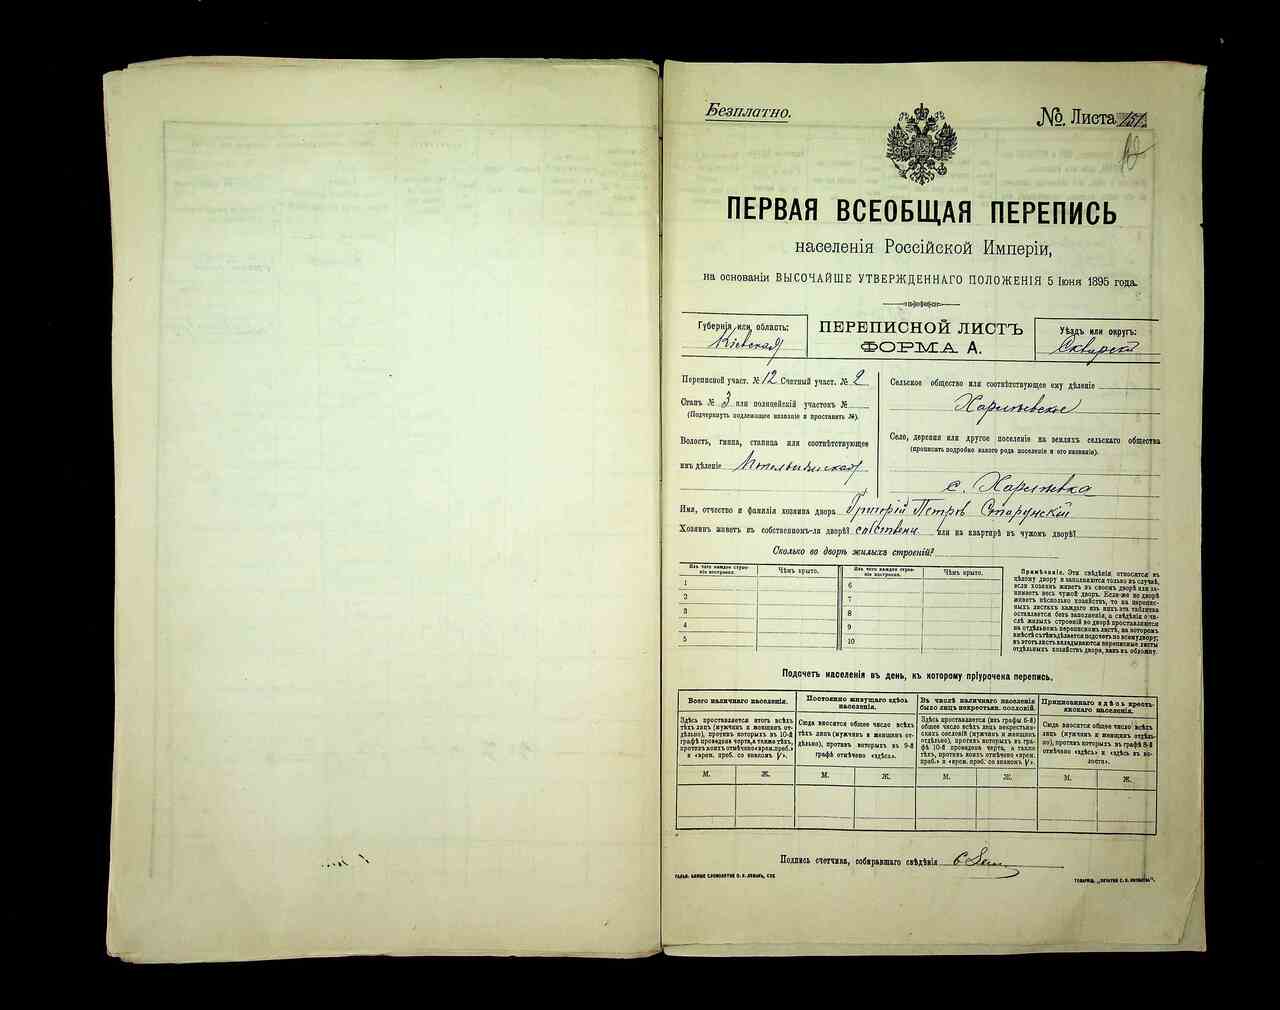 Безплатно.
№ Листа 151.
ПЕРВАЯ ВСЕОБЩАЯ ПЕРЕПИСЬ
населенія Россійской Имперіи,
на основаніи ВЫСОЧАЙШЕ УТВЕРЖДЕННАГО ПОЛОЖЕНІЯ 5 Іюня 1895 года.
Губернія или область:
Кіевская
ПЕРЕПИСНОЙ ЛИСТЪ
ФОРМА А.
Уѣздъ или округъ:
Сквирскій
Переписной участ. № 12 Счетный участ. № 2
Станъ № 3 или полицейскій участокъ №
(Подчеркнуть подлежащее названіе и проставить №).
Волость, гмина, станица или соотвѣтствующее
имъ дѣленіе
Сельское общество или соотвѣтствующее ему дѣленіе
Харлѣевское
Село, деревня или другое поселеніе на земляхъ сельскаго общества
(прописать подробно какого рода поселеніе и его названіе).
с. Харлѣевка
Имя, отчество и фамилія хозяина двора Григорій Петровъ Старунскій
Хозяинъ живетъ въ собственномъ-ли дворѣ? собствен. или на квартирѣ въ чужомъ дворѣ?
Сколько во дворѣ жилыхъ строеній?
Изъ чего каждое строеніе построено.
Чѣмъ крыто.
Изъ чего каждое строеніе построено.
Чѣмъ крыто.
1
2
3
4
5
6
7
8
9
10
Примѣчаніе. Эти свѣдѣнія относятся къ
цѣлому двору и заполняются только въ случаѣ,
если хозяинъ живетъ въ своемъ дворѣ или занимаетъ
весь чужой дворъ. Если-же во дворѣ
живетъ нѣсколько хозяйствъ, то на переписныхъ
листахъ каждаго изъ нихъ эта табличка
оставляется безъ заполненія, а свѣдѣнія о числѣ
жилыхъ строеній во дворѣ проставляются
на отдѣльномъ переписномъ листѣ, на которомъ
вмѣстѣ съ тѣмъ дѣлается подсчетъ по всему двору;
въ этотъ листъ вкладываются переписные листы
отдѣльныхъ хозяйствъ двора, какъ въ обложку.
Подсчетъ населенія въ день, къ которому пріурочена перепись.
Всего наличнаго населенія.
Постоянно живущаго здѣсь населенія.
Въ числѣ наличнаго населенія было лицъ некрестьян. сословій.
Приписаннаго здѣсь крестьянскаго населенія.
Здѣсь проставляется итогъ всѣхъ
тѣхъ лицъ (мужчинъ и женщинъ отдѣльно),
противъ которыхъ въ 10-й
графѣ проведена черта, а также тѣхъ,
противъ коихъ отмѣчено «врем. преб.»
и «врем. преб. со знакомъ V».
Сюда вносится общее число всѣхъ
тѣхъ лицъ (мужчинъ и женщинъ отдѣльно),
противъ которыхъ въ 9-й
графѣ отмѣчено «здѣсь».
Здѣсь проставляется (изъ графы 6-й)
общее число всѣхъ лицъ некрестьянскихъ
сословій (мужчинъ и женщинъ
отдѣльно), противъ которыхъ въ графѣ
10-й проведена черта, а также
тѣхъ, противъ коихъ отмѣчено «врем.
преб.» и «врем. преб. со знакомъ V».
Сюда вносится общее число всѣхъ
лицъ (мужчинъ и женщинъ отдѣльно),
противъ которыхъ въ графѣ 8-й
отмѣчено «здѣсь» и «здѣсь въ волости».
М. Ж. М. Ж. М. Ж. М. Ж.
Подпись счетчика, собиравшаго свѣдѣнія